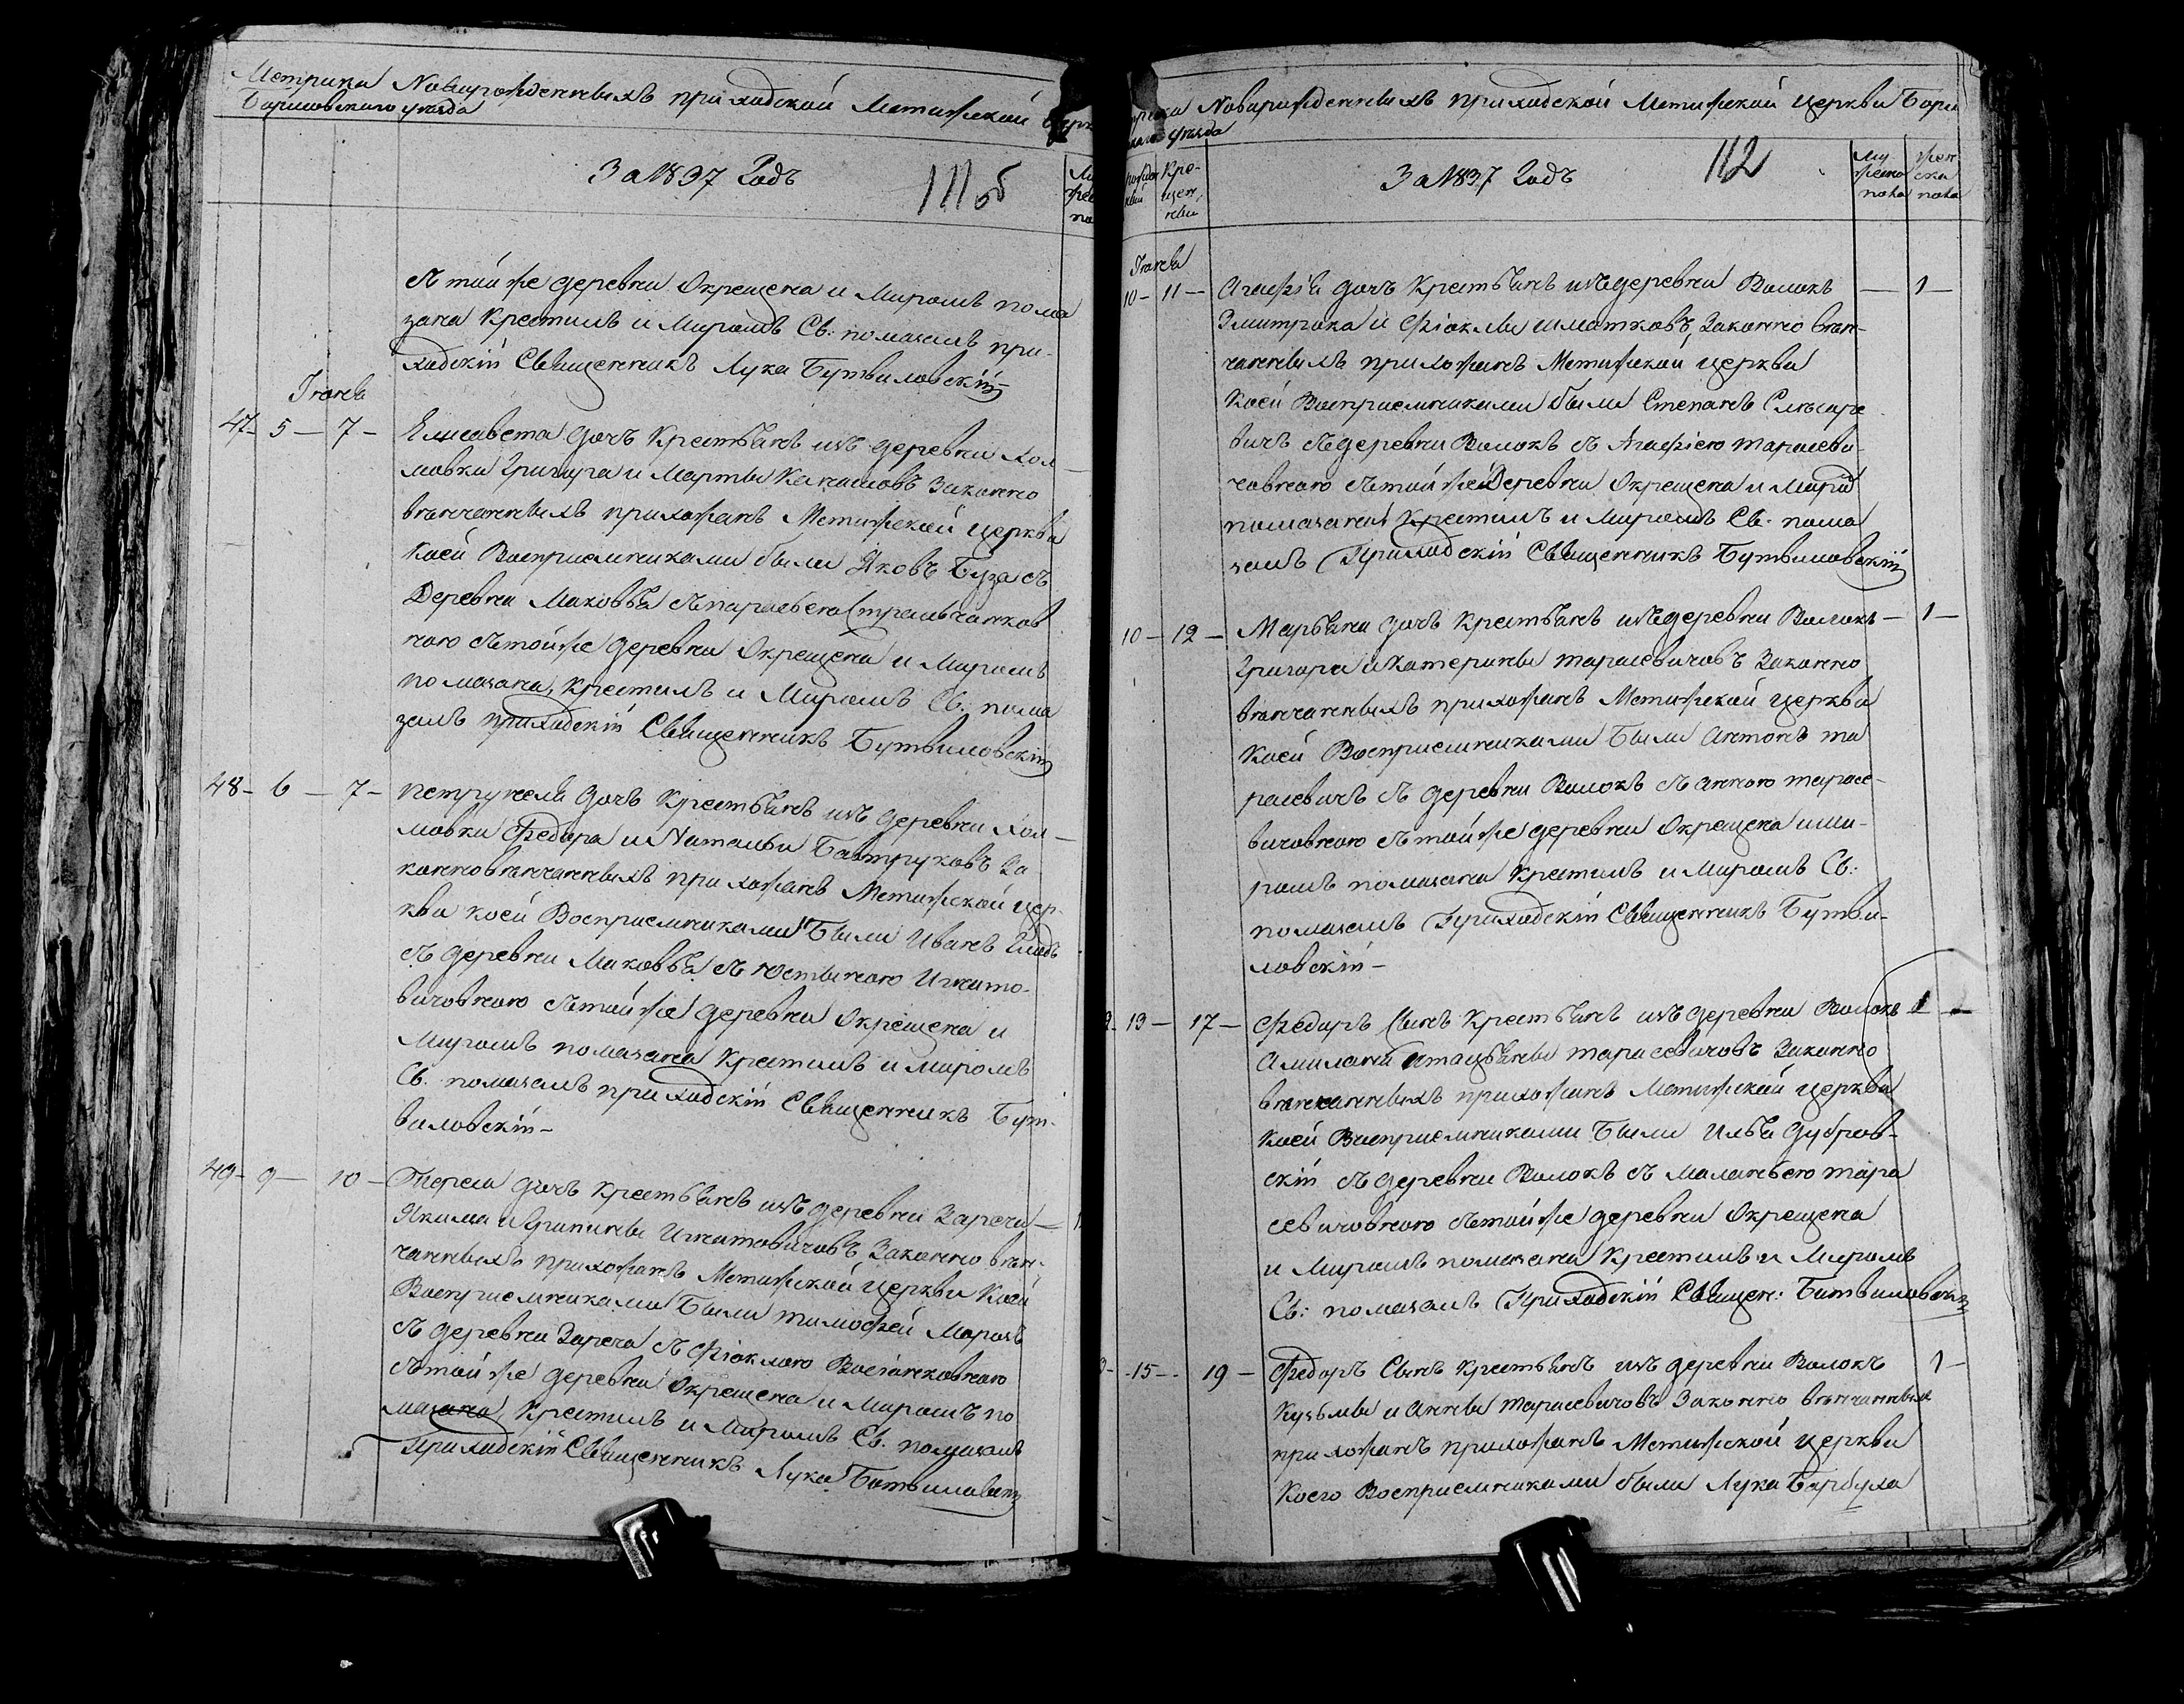 Метрика Новарожденныхъ приходской Метижской церк
Борисовскаго уезда
За 1837 Годъ
111 об
съ тойже деревни Окрещена и Миромъ пома
зана Крестилъ и Миромъ Св: помазалъ при-
ходскій Священникъ Лука Бутвиловскій
Іюнь
47 - 5 - 7 - Елисавета дочь Крестьянъ изъ деревни Хол-
мовки Григора и Марты Законно
венчанныхъ прихожанъ Метижской церкви
Коей Восприемниками были Яковъ Буза съ
Деревни Маковья
ною съ тойже деревни Окрещена и Миромъ
помазана, Крестилъ и Миромъ Св: пома
залъ приходскій Священникъ Бутвиловскій
48 - 6 - 7 - Петрунеля дочь Крестьянъ изъ деревни Хол-
мовки Федора и Натальи Бавтруковъ За
конно венчанныхъ прихожанъ Метижской цер-
кви коей Восприемниками Были Иванъ
съ деревни Маковья съ Юстыною Игнато-
вичовною съ тойже деревни Окрещена и
Миромъ помазана Крестилъ и Миромъ
Св: помазалъ приходскій Священникъ Бут-
виловскій -
49 - 9 - 10 - Тереса дочь Крестьянъ изъ деревни Заречи -
Якима и Грипины Игнатовичовъ Законно вен-
чанныхъ прихожанъ Метижской церкви Коей
Восприемниками Были Тимофей Марозъ
съ деревни Зареча съ Фіоклою
съ тойже деревни Окрещена и Миромъ по
мазана, Крестилъ и Миромъ Св: помазалъ
Приходскій Священникъ Лука Батвиловскій
Новарожденныхъ приходской Метижской церкви Бори
уезда
Кре-
щен-
ныи
За 1837 Годъ
112
Му-
жеска
пола
жен
ска
пола
Іюнь
10 - 11 - Агафія дочь Крестьянъ изъ деревни Волокъ - 1 -
Змитрака и Фіоклы Шматковъ, Законно вен-
чанныхъ прихожанъ Метижской церкви
Коей Восприемниками были Степанъ Слесаре
вичъ съ деревни Волокъ съ Агафіею Тарасеви-
човною съ тойже Деревни Окрещена и Миро
помазана Крестилъ и Миромъ Св: пома
залъ Приходскій Священникъ Бутвиловскій
10 - 12 - Марьяна дочь Крестьянъ изъ деревни Волокъ - 1 -
Григора и Катерины Тарасевичовъ Законно
венчанныхъ прихожанъ Метижской церкви
Коей Восприемниками Были Антонъ Та
расевичъ съ деревни Волокъ съ Анною Тарасе-
вичовною съ тойже деревни Окрещена и Ми-
ромъ помазана Крестилъ и Миромъ Св:
помазалъ Приходскій Священникъ Бутви-
ловскій -
13 - 17 - Федоръ Сынъ Крестьянъ изъ деревни Волокъ 1 -
и Тацьяны Тарасевичовъ Законно
венчанныхъ прихожанъ Метижской церкви
Коей Восприемниками Были Илья Дубров-
скій съ деревни Волокъ съ Маланьею Тара
севичовною съ тойже деревни Окрещена
и Миромъ помазана Крестилъ и Миромъ
Св: помазалъ Приходскій Священ: Батвиловскій
15 - 19 - Федоръ Сынъ Крестьянъ изъ деревни Волокъ 1 -
Кузьмы и Анны Тарасевичовъ Законно венчанныхъ
прихожанъ прихожанъ Метижской церкви
Коего Восприемниками были Лука Барбуха